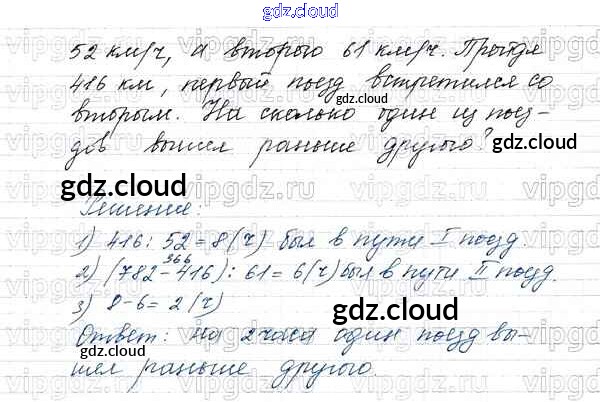 gdz.cloud
52 км/ч, а второго 61 км/ч. Пройдя
416 км, первый поезд встретился со
вторым. На сколько один из поез-
дов вышел раньше другого?
Решение:
1) 416 : 52 = 8 (ч) был в пути I поезд.
366
2) (782 - 416) : 61 = 6 (ч) был в пути II поезд.
3) 8 - 6 = 2 (ч)
Ответ: на 2 часа один поезд вы-
шел раньше другого.
gdz.cloud
gdz.cloud
gdz.cloud
gdz.cloud
gdz.cloud
gdz.cloud
gdz.cloud
vipgdz.cloud